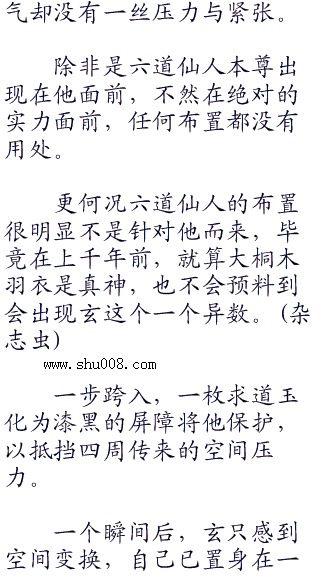 气却没有一丝压力与紧张。
除非是六道仙人本尊出
现在他面前，不然在绝对的
实力面前，任何布置都没有
用处。
更何况六道仙人的布置
很明显不是针对他而来，毕
竟在上千年前，就算大桐木
羽衣是真神，也不会预料到
会出现玄这个一个异数。(杂
志虫)
www.shu008.com
一步跨入，一枚求道玉
化为漆黑的屏障将他保护，
以抵挡四周传来的空间压
力。
一个瞬间后，玄只感到
空间变换，自己已置身在一